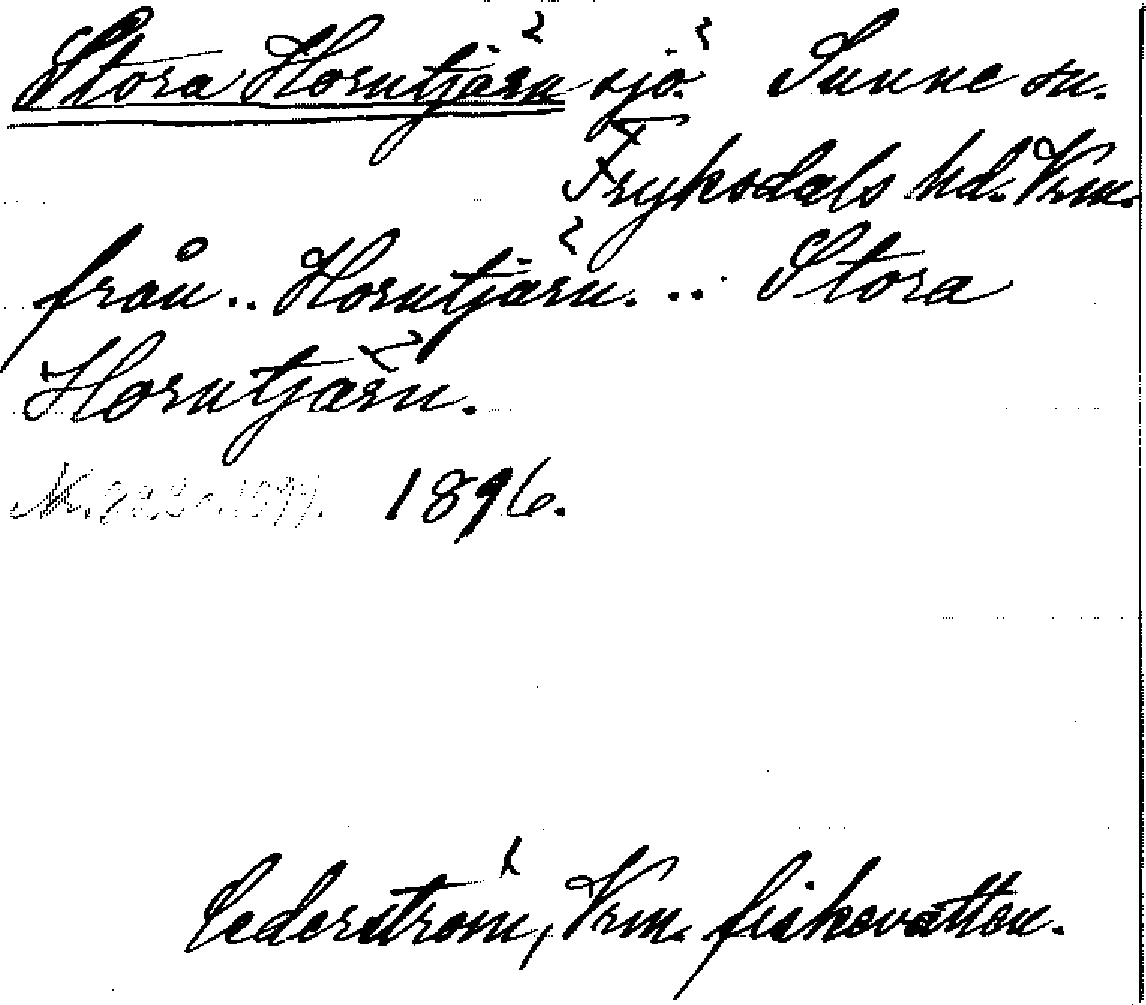 Stora Horntjärn sjö. Sunne sn.
Fryksdals hd. Vrm.
från .. Horntjärn. ... Stora
Horntjärn.
1896.
Cederström, Vrm. fiskevatten.